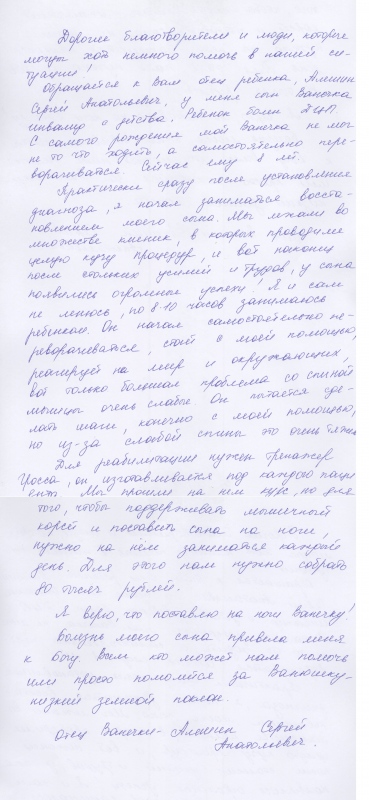 Дорогие благотворители и люди, которые
могут хоть немного помочь в нашей си-
туации!
Обращается к Вам отец ребенка, Алешин
Сергей Анатольевич, у меня сын Ванечка
инвалид с детства. Ребенок болен ДЦП.
С самого рождения мой Ванечка не мог
не то что ходить, а самостоятельно пере-
ворачиваться. Сейчас ему 8 лет.
Практически сразу после установления
диагноза, я начал заниматься восста-
новлением моего сына. Мы лежали во
множестве клиник, в которых проводили
целую кучу процедур, и вот наконец
после стольких усилий и трудов, у сына
появились огромные успехи! А я и сам
не ленюсь, по 8-10 часов занимаюсь
ребенком. Он начал самостоятельно пе-
реворачиваться, стоит с моей помощью,
реагирует на мир и окружающих,
вот только большая проблема со спиной
мышцы очень слабые. Он пытается де-
лать шаги, конечно с моей помощью,
но из-за слабой спины это очень тяжко
Для реабилитации нужен тренажер
Гросса, он изготавливается под каждого паци
ента. Мы прошли на нем курс, но для
того, чтобы поддерживать мышечный
корсет и поставить сына на ноги,
нужно на нём заниматься каждый
день. Для этого нам нужно собрать
80 тысяч рублей.
Я верю, что поставлю на ноги Ванечку!
Болезнь моего сына привела меня
к Богу. Всем кто может нам помочь
или просто помолится за Ванюшку-
низкий земной поклон.
Отец Ванечки - Алешин Сергей
Анатольевич.